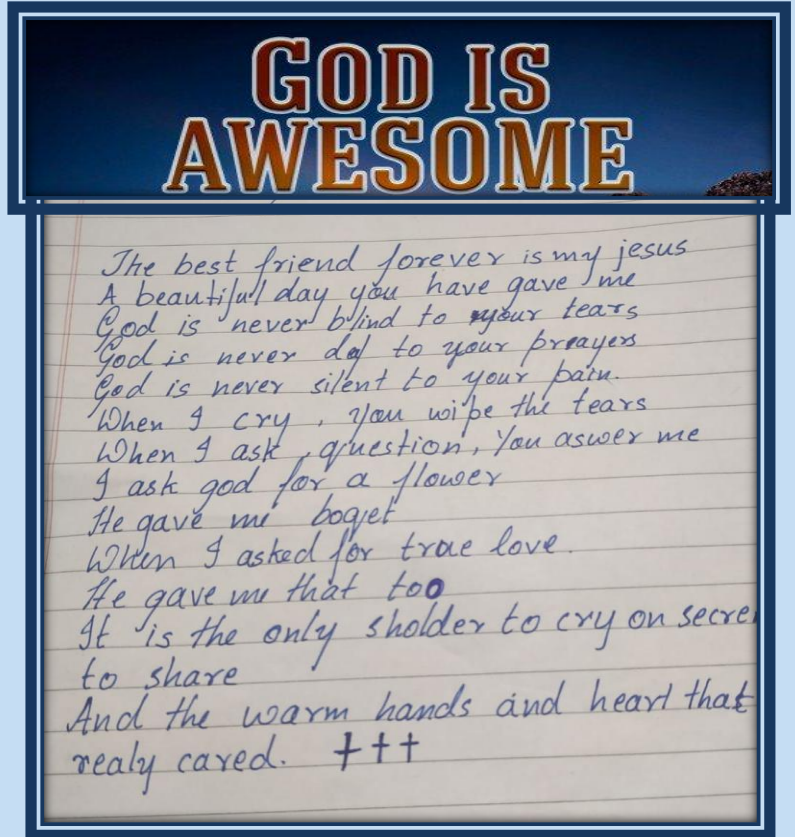 GOD IS
AWESOME
The best friend forever is my jesus
A beautiful day you have gave me
God is never blind to your tears
God is never def to your preayers
God is never silent to your pain.
When I cry, you wipe the tears
When I ask, question, You aswer me
I ask god for a flower
He gave me boqet
When I asked for trae love.
He gave me that too
It is the only sholder to cry on secre
to share
And the warm hands and heart that
realy cared. †††